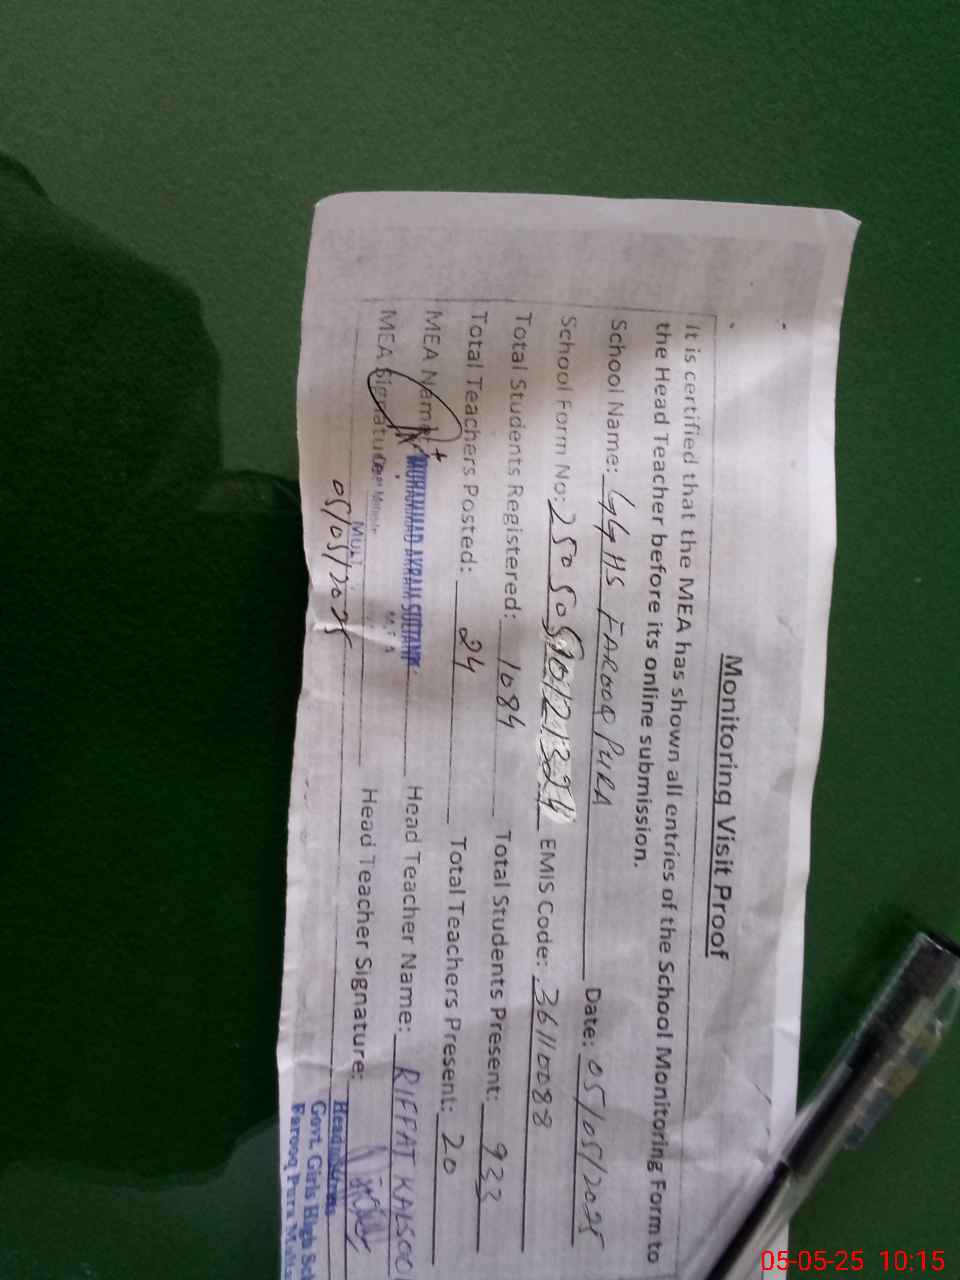 Monitoring Visit Proof
It is certified that the MEA has shown all entries of the School Monitoring Form to
the Head Teacher before its online submission.
School Name: GGHS FAROOQ PURA Date: 05/05/2025
School Form No: EMIS Code: 36110088
Total Students Registered: 1084 Total Students Present: 933
Total Teachers Posted: 24 Total Teachers Present: 20
MEA Name: MUHAMMAD AKRAM SULTANI Head Teacher Name: RIFFAT KALSOO
MEA Signature Head Teacher Signature:
05/05/2025
Headmistress
Govt. Girls High Sch
Farooq Pura Multa
05-05-25 10:15